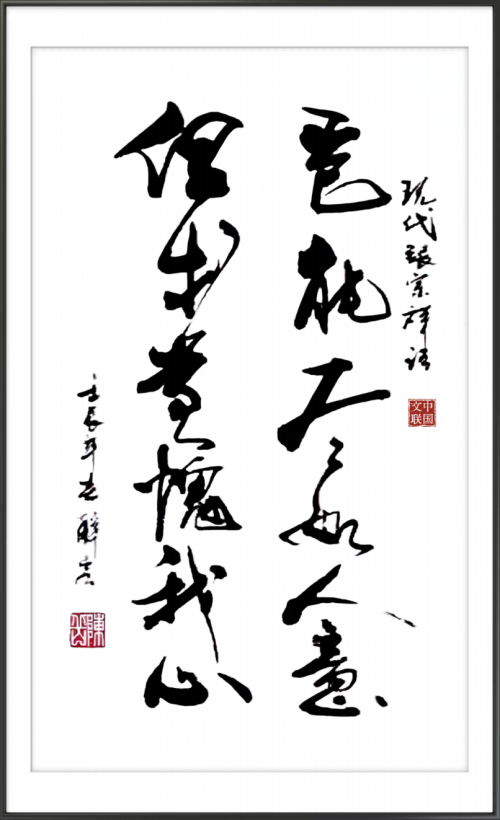 現代張宗祥語
中国文联
豈能尽如人意
但求無愧我心
壬辰年